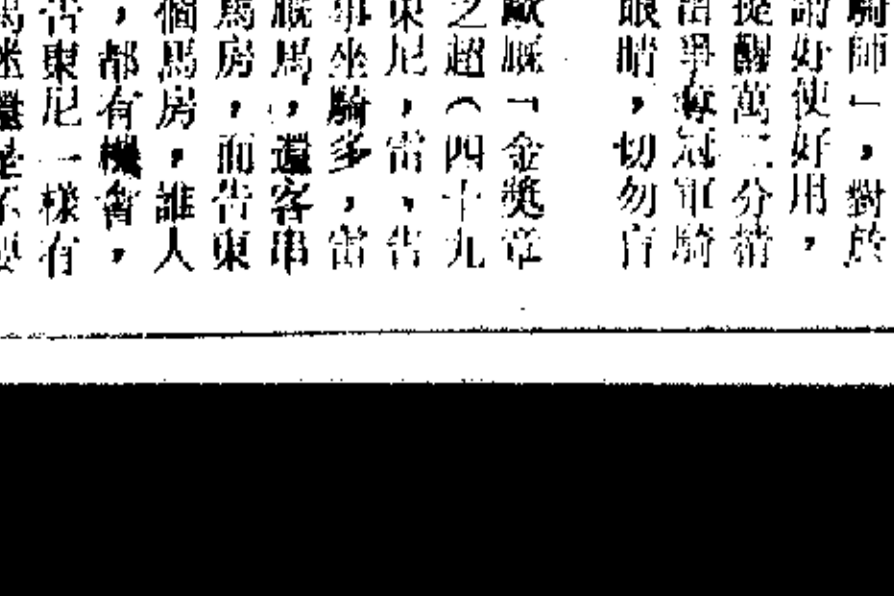 騎師」，對於
請好使好用，
提醒萬二分精
出爭奪冠軍騎
眼睛，切勿盲
廠「金獎章
之超（四十九
東尼，雷、告
事坐騎多，雷
廠馬，還客串
馬房，而告東
個馬房，誰人
，都有機會，
告東尼一樣有